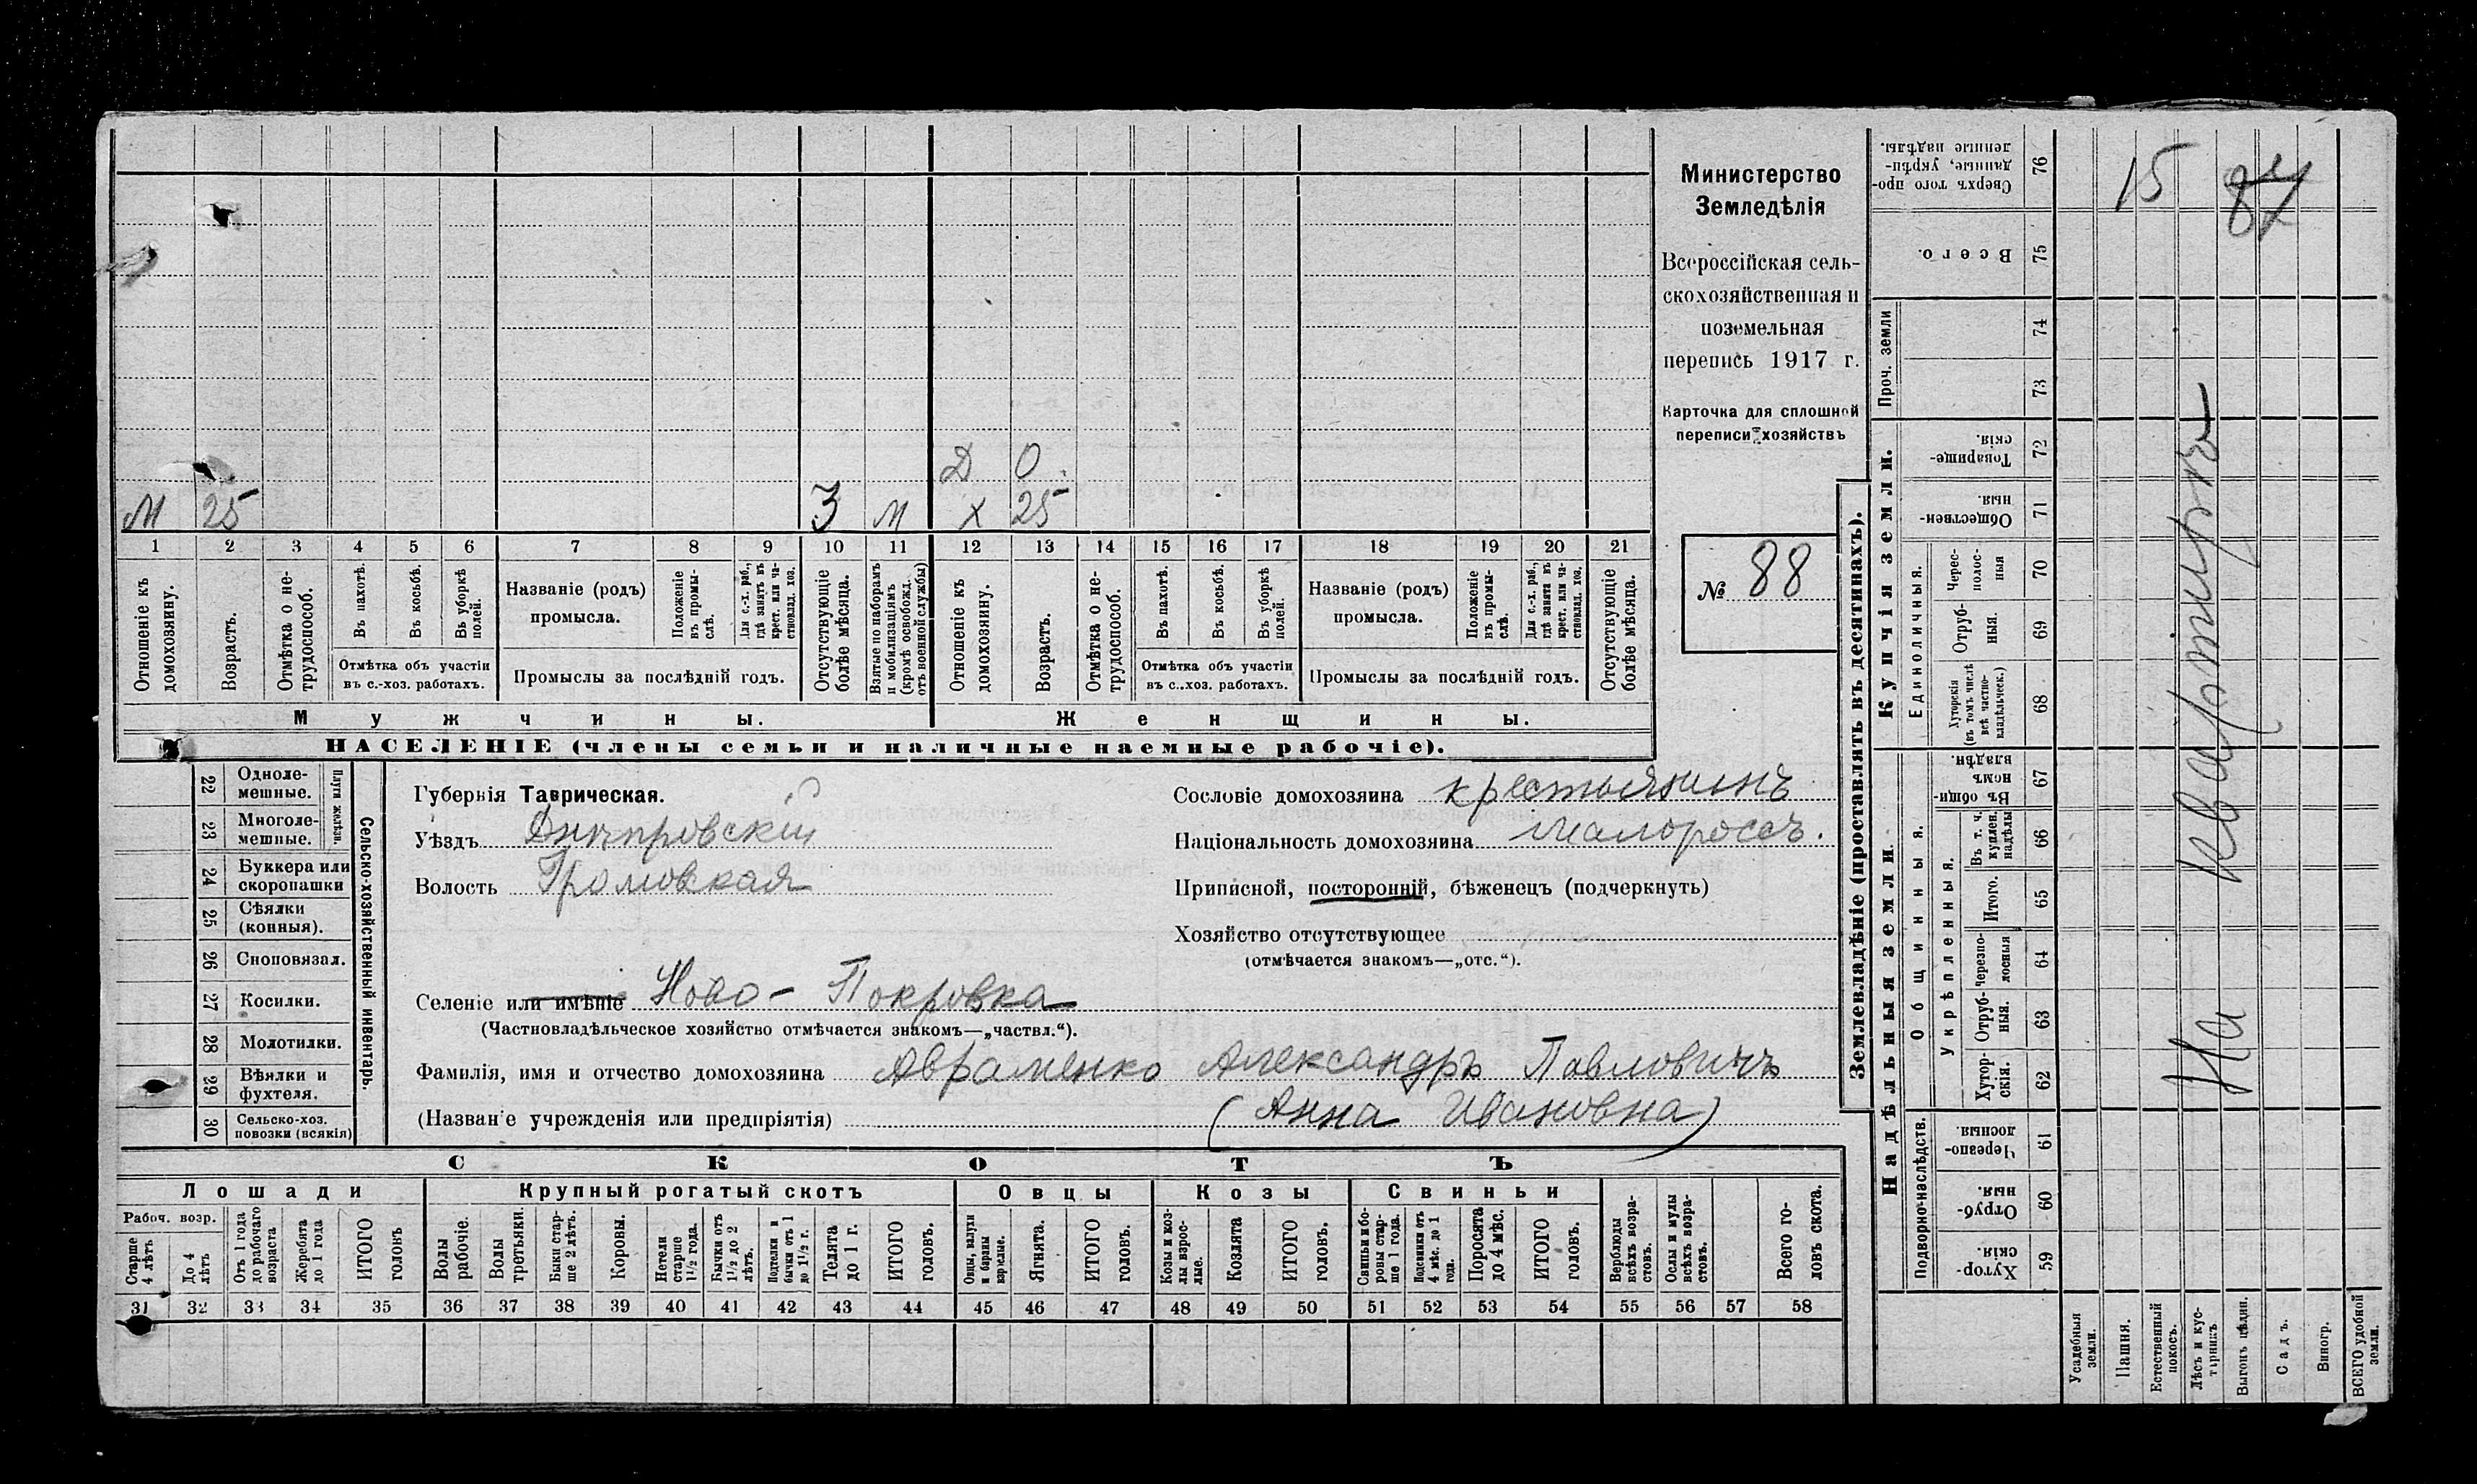 Министерство
Земледѣлія
Всероссійская сель-
скохозяйственная и
поземельная
перепись 1917 г.
Карточка для сплошной
переписи хозяйствъ
№ 88
Д 0
М 25 З М Х 25
1 2 3 4 5 6 7 8 9 10 11 12 13 14 15 16 17 18 19 20 21
Отношеніе къ домохозяину.
Возрастъ.
Отмѣтка о не-трудоспособ.
Въ пахотѣ.
Въ косьбѣ.
Въ уборкѣ полей.
Отмѣтка объ участіи
въ с.-хоз. работахъ.
Названіе (родъ)
промысла.
Положеніе въ промы-слѣ.
Для с.-х. раб., гдѣ занятъ въ крест. или ча-стновлад. хоз.
Промыслы за послѣдній годъ.
Отсутствующіе болѣе мѣсяца.
Взятые по наборамъ и мобилизаціямъ (кромѣ освобожд. отъ военной службы)
Отношеніе къ домохозяину.
Возрастъ.
Отмѣтка о не-трудоспособ.
Въ пахотѣ.
Въ косьбѣ.
Въ уборкѣ полей.
Отмѣтка объ участіи
въ с.-хоз. работахъ.
Названіе (родъ)
промысла.
Положеніе въ промы-слѣ.
Для с.-х. раб., гдѣ занята въ крест. или ча-стновлад. хоз.
Промыслы за послѣдній годъ.
Отсутствующіе болѣе мѣсяца.
Мужчины. Женщины.
НАСЕЛЕНІЕ (члены семьи и наличные наемные рабочіе).
22 Одноле-мешные.
23 Многоле-мешные.
Плуги желѣзн.
24 Буккера или скоропашки
25 Сѣялки (конныя).
26 Сноповязал.
27 Косилки.
28 Молотилки.
29 Вѣялки и фухтеля.
30 Сельско-хоз. повозки (всякія)
Сельско-хозяйственный инвентарь.
Губернія Таврическая.
Уѣздъ Днѣпровскій
Волость Громовская
Селеніе или имѣніе Ново-Покровка
(Частновладѣльческое хозяйство отмѣчается знакомъ—„частвл.“).
Фамилія, имя и отчество домохозяина Авраменко Александръ Павловичъ
(Названіе учрежденія или предпріятія) (Анна Ивановна)
Сословіе домохозяина крестьянинъ
Національность домохозяина малороссъ.
Приписной, посторонній, бѣженецъ (подчеркнуть)
Хозяйство отсутствующее
(отмѣчается знакомъ—„отс.“).
СКОТЪ
Лошади Крупный рогатый скотъ Овцы Козы Свиньи
Рабоч. возр.
Старше 4 лѣтъ
До 4 лѣтъ
Отъ 1 года до рабочаго возраста
Жеребята до 1 года
ИТОГО головъ
Волы рабочіе.
Волы третьяки.
Быки стар-ше 2 лѣтъ.
Коровы.
Нетели старше 1½ года.
Бычки отъ 1½ до 2 лѣтъ.
Подтелки и бычки отъ 1 до 1½ г.
Телята до 1 г.
ИТОГО головъ.
Овцы, валухи и бараны взрослые.
Ягнята.
ИТОГО головъ.
Козы и коз-лы взрос-лые.
Козлята
ИТОГО головъ.
Свиньи и бо-ровы стар-ше 1 года.
Подсвинки отъ 4 мѣс. до 1 года.
Поросята до 4 мѣс.
ИТОГО головъ.
Верблюды всѣхъ возра-стовъ.
Ослы и мулы всѣхъ возра-стовъ.
Всего го-ловъ скота.
31 32 33 34 35 36 37 38 39 40 41 42 43 44 45 46 47 48 49 50 51 52 53 54 55 56 57 58
Землевладѣніе (проставлять въ десятинахъ).
Надѣльныя земли. Купчія земли.
Подворно-наслѣдств.
Общинныя.
Укрѣпленныя.
Единоличныя.
Проч. земли
Хутор-скія. 59
Отруб-ныя. 60
Черезпо-лосныя. 61
Хутор-скія. 62
Отруб-ныя. 63
Черезпо-лосныя 64
Итого. 65
Въ т. ч. куплен. надѣлы 66
Въ общин-номъ владѣн. 67
Хуторскія (въ томъ числѣ всѣ частно-владѣльческ.) 68
Отруб-ныя. 69
Черес-полос-ныя 70
Обществен-ныя. 71
Товарище-скія. 72
73
74
Всего. 75
Сверхъ того про-данные, укрѣп-ленные надѣлы. 76
Усадебныя земли.
Пашня.
Естественный покосъ.
Лѣсъ и кус-тарникъ
Выгонъ цѣлин.
Садъ.
Виногр.
ВСЕГО удобной земли.
На квартирѣ
15